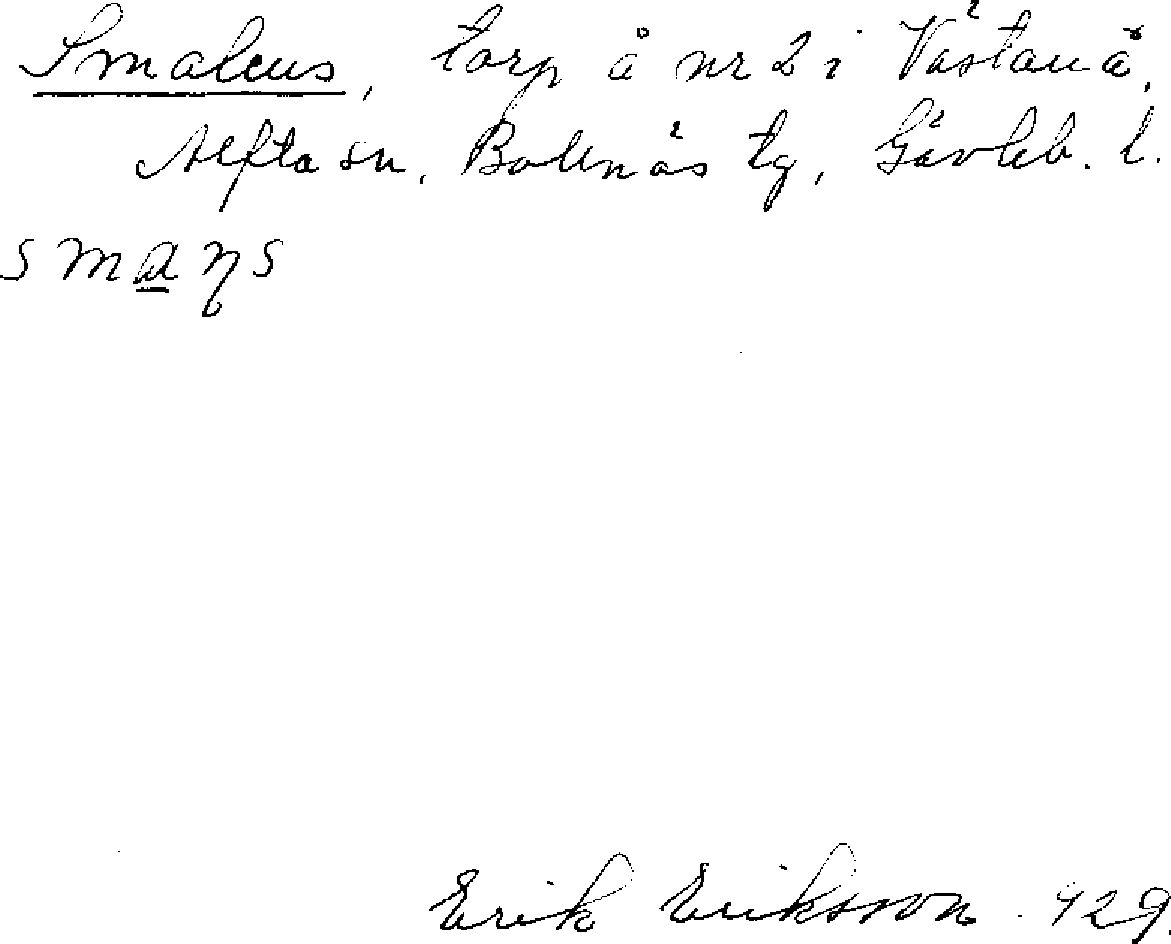 Smalens, torp å nr 2 i Västanå,
Alfta sn, Bollnäs tg, Gävleb. l.
smaŋs
Erik Eriksson. 929.